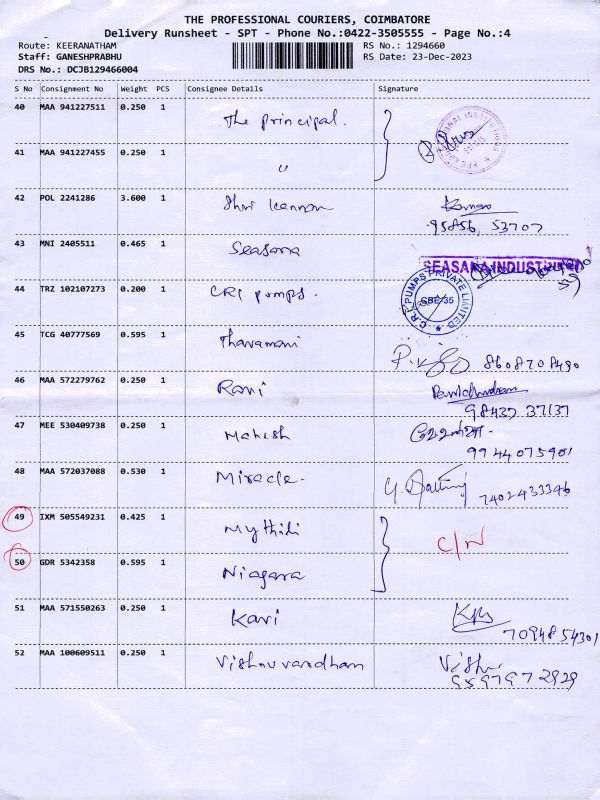 THE PROFESSIONAL COURIERS, COIMBATORE
Delivery Runsheet - SPT - Phone No.:0422-3505555 - Page No.:4
Route: KEERANATHAM RS No.: 1294660
Staff: GANESHPRABHU RS Date: 23-Dec-2023
DRS No.: DCJB129466004
S No Consignment No Weight PCS Consignee Details Signature
40 MAA 941227511 0.250 1 The principal.
41 MAA 941227455 0.250 1 "
42 POL 2241286 3.600 1 Shri Kannan
95856, 53707
43 MNI 2405511 0.465 1 Seasana
SEASANA INDUSTRIES
44 TRZ 102107273 0.200 1 CRI pumps.
C.R.I. PUMPS PRIVATE LIMITED
SBE-35
45 TCG 40777569 0.595 1 Thavamani
8608708490
46 MAA 572279762 0.250 1 Rani
98437 37137
47 MEE 530409738 0.250 1 Mahesh
9944075901
48 MAA 572037088 0.530 1 Miracle.
7402433346
49 IXM 505549231 0.425 1 Mythili C/N
50 GDR 5342358 0.595 1 Niagara
51 MAA 571550263 0.250 1 Kavi
7094854301
52 MAA 100609511 0.250 1 Vishnuvardham Vishnu
9597972929